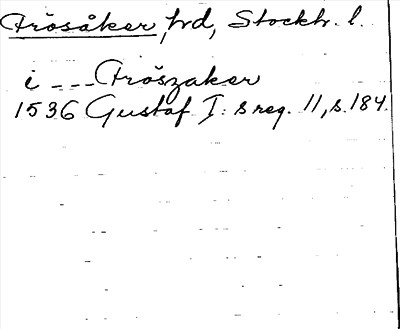 Frösåker, hrd, Stockh. l.
i --- Fröszaker
1536 Gustaf I: s reg. 11, s. 184.